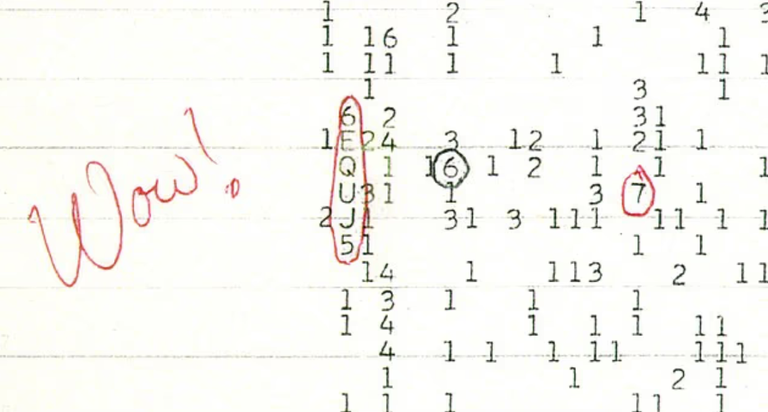 1 2 1 4 3
1 16 1 1 1
1 11 1 1 11 1
1 3 1
6 2 31
1 E24 3 12 1 21 1
Q 1 16 1 2 1 1 1
Wow!
U31 1 3 7 1
2 J1 31 3 111 11 1 1
51 1 1
14 1 113 2 11
1 3 1 1 1
1 4 1 1 1 11
4 1 1 1 11 111
1 1 2 1
1 1 1 11 1